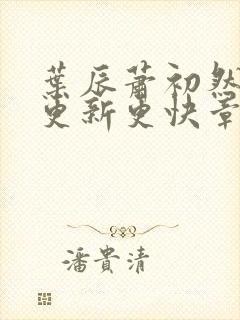 葉辰蕭初然
更新更快章
潘貴清